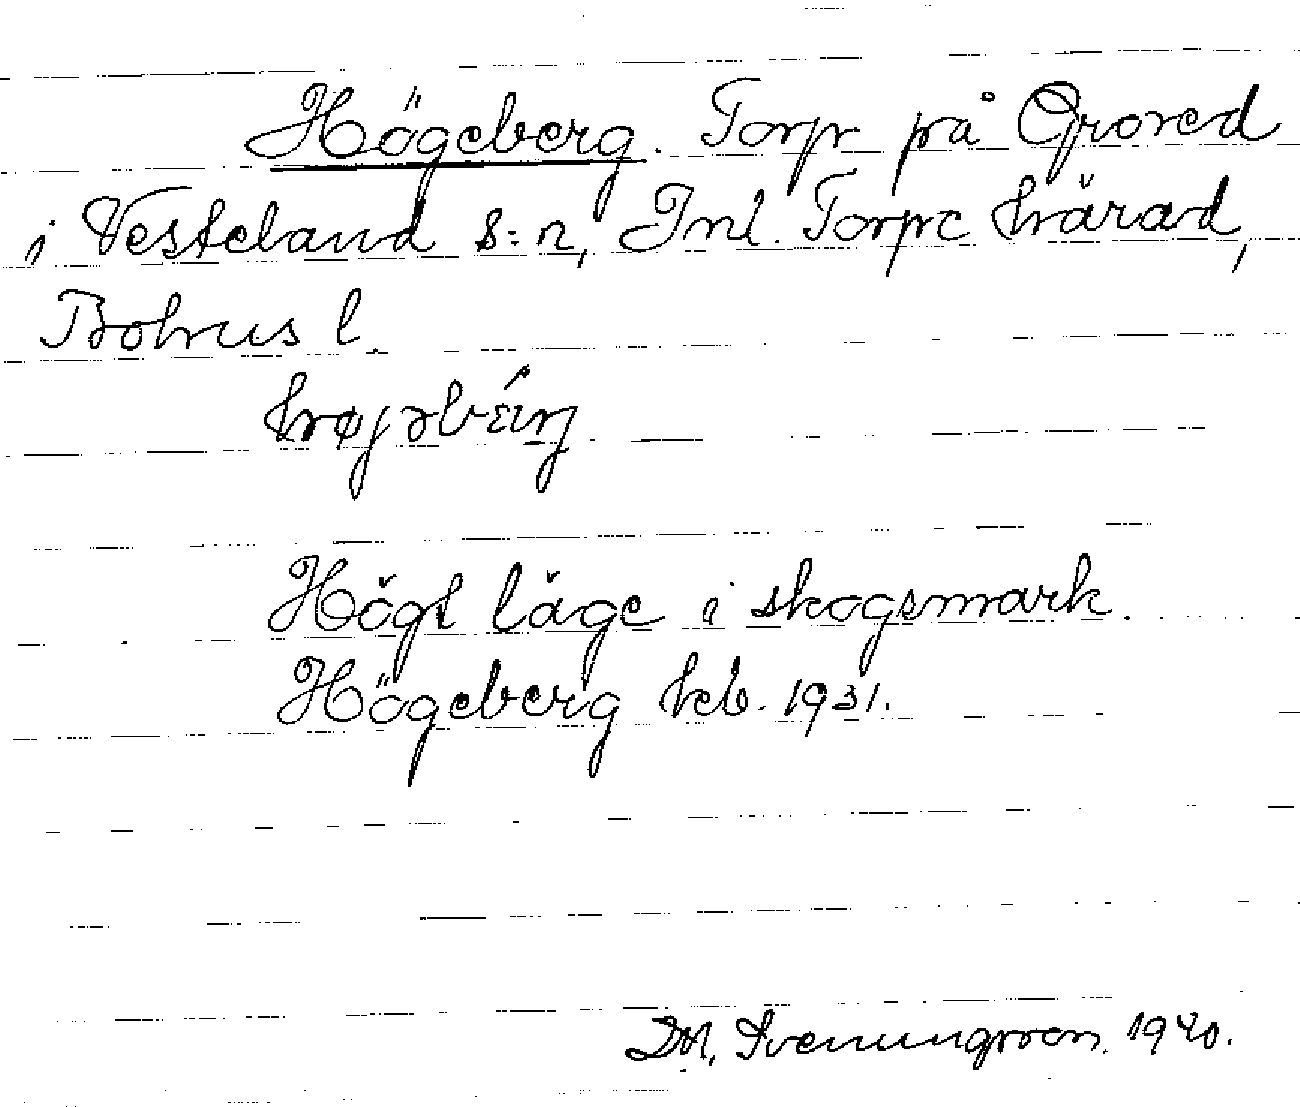 Högeberg. Torp på Grored
i Vesteland s:n, Inl. Torpe härad,
Bohus l.
Högt läge i skogsmark.
Högeberg kcb. 1931.
DM. Svenungsson. 1940.